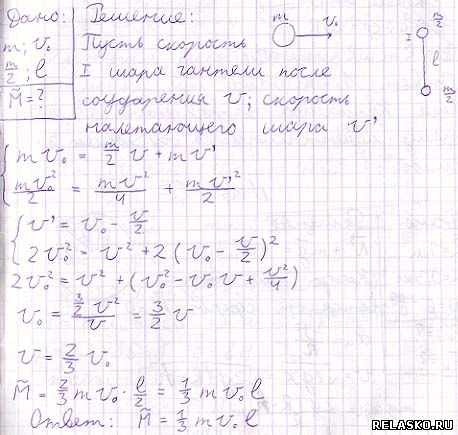 Дано: Решение:
m; v₀ Пусть скорость
m/2; l I шара гантели после
M̃ = ? соударения v; скорость
налетающего шара v'
m v₀
I m/2
l
m/2
{ m v₀ = m/2 v + m v'
m v₀²/2 = m v²/4 + m v'²/2
{ v' = v₀ - v/2
2 v₀² = v² + 2 (v₀ - v/2)²
2 v₀² = v² + (v₀² - v₀ v + v²/4)
v₀ = (3/2 v²)/v = 3/2 v
v = 2/3 v₀
M̃ = 2/3 m v₀ · l/2 = 1/3 m v₀ l
Ответ: M̃ = 1/3 m v₀ l
RELASKO.RU